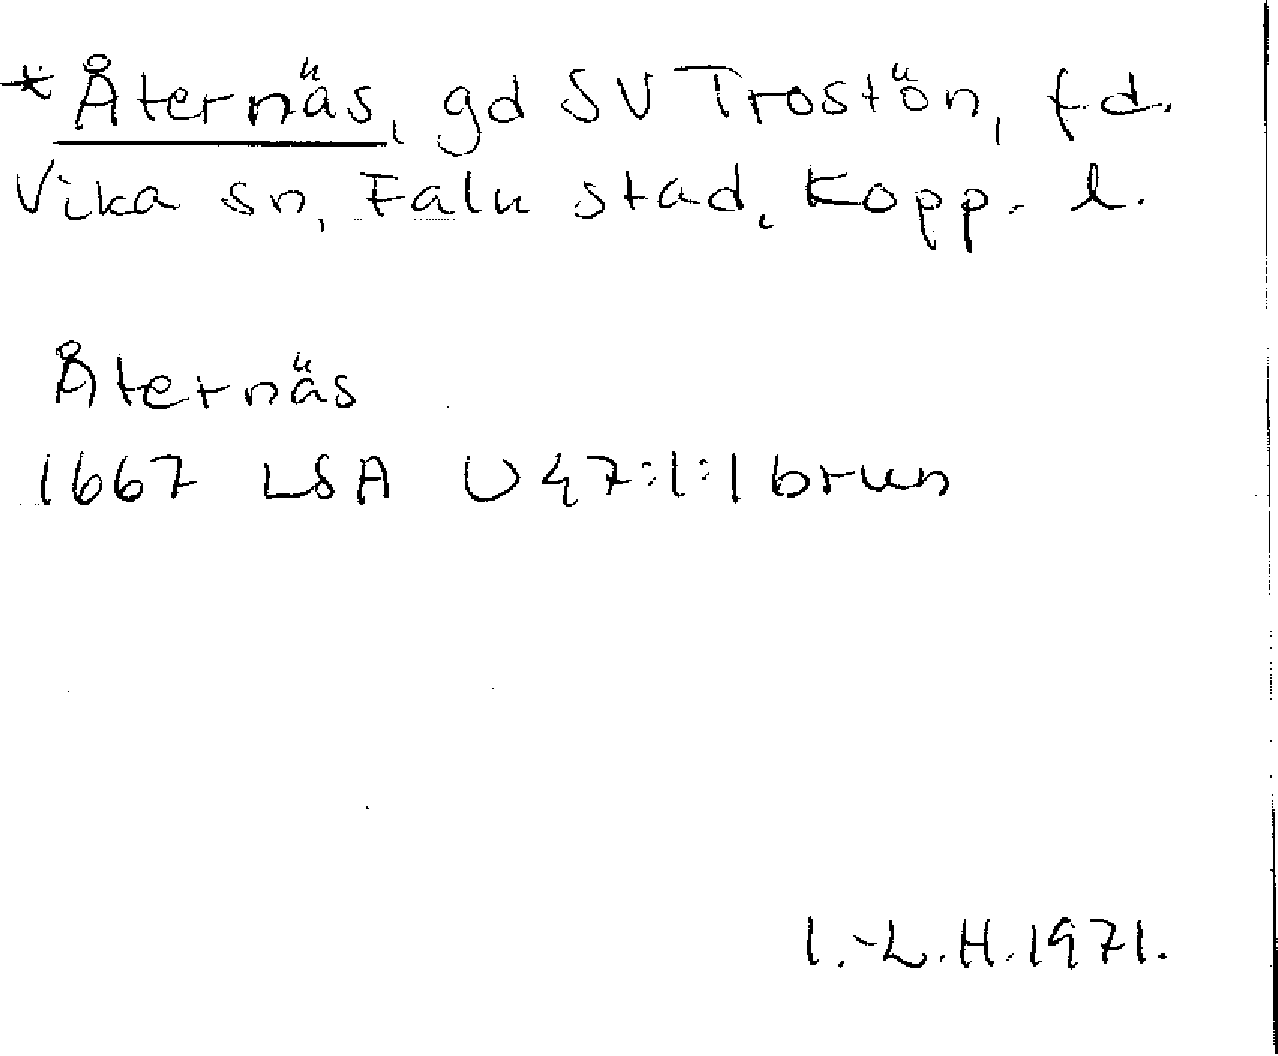 *Åternäs, gd SV Trostön, f.d.
Vika sn, Falu stad, Kopp. l.
Åternäs
1667 LSA U 47:1:1 brun
I.-L.H.1971.